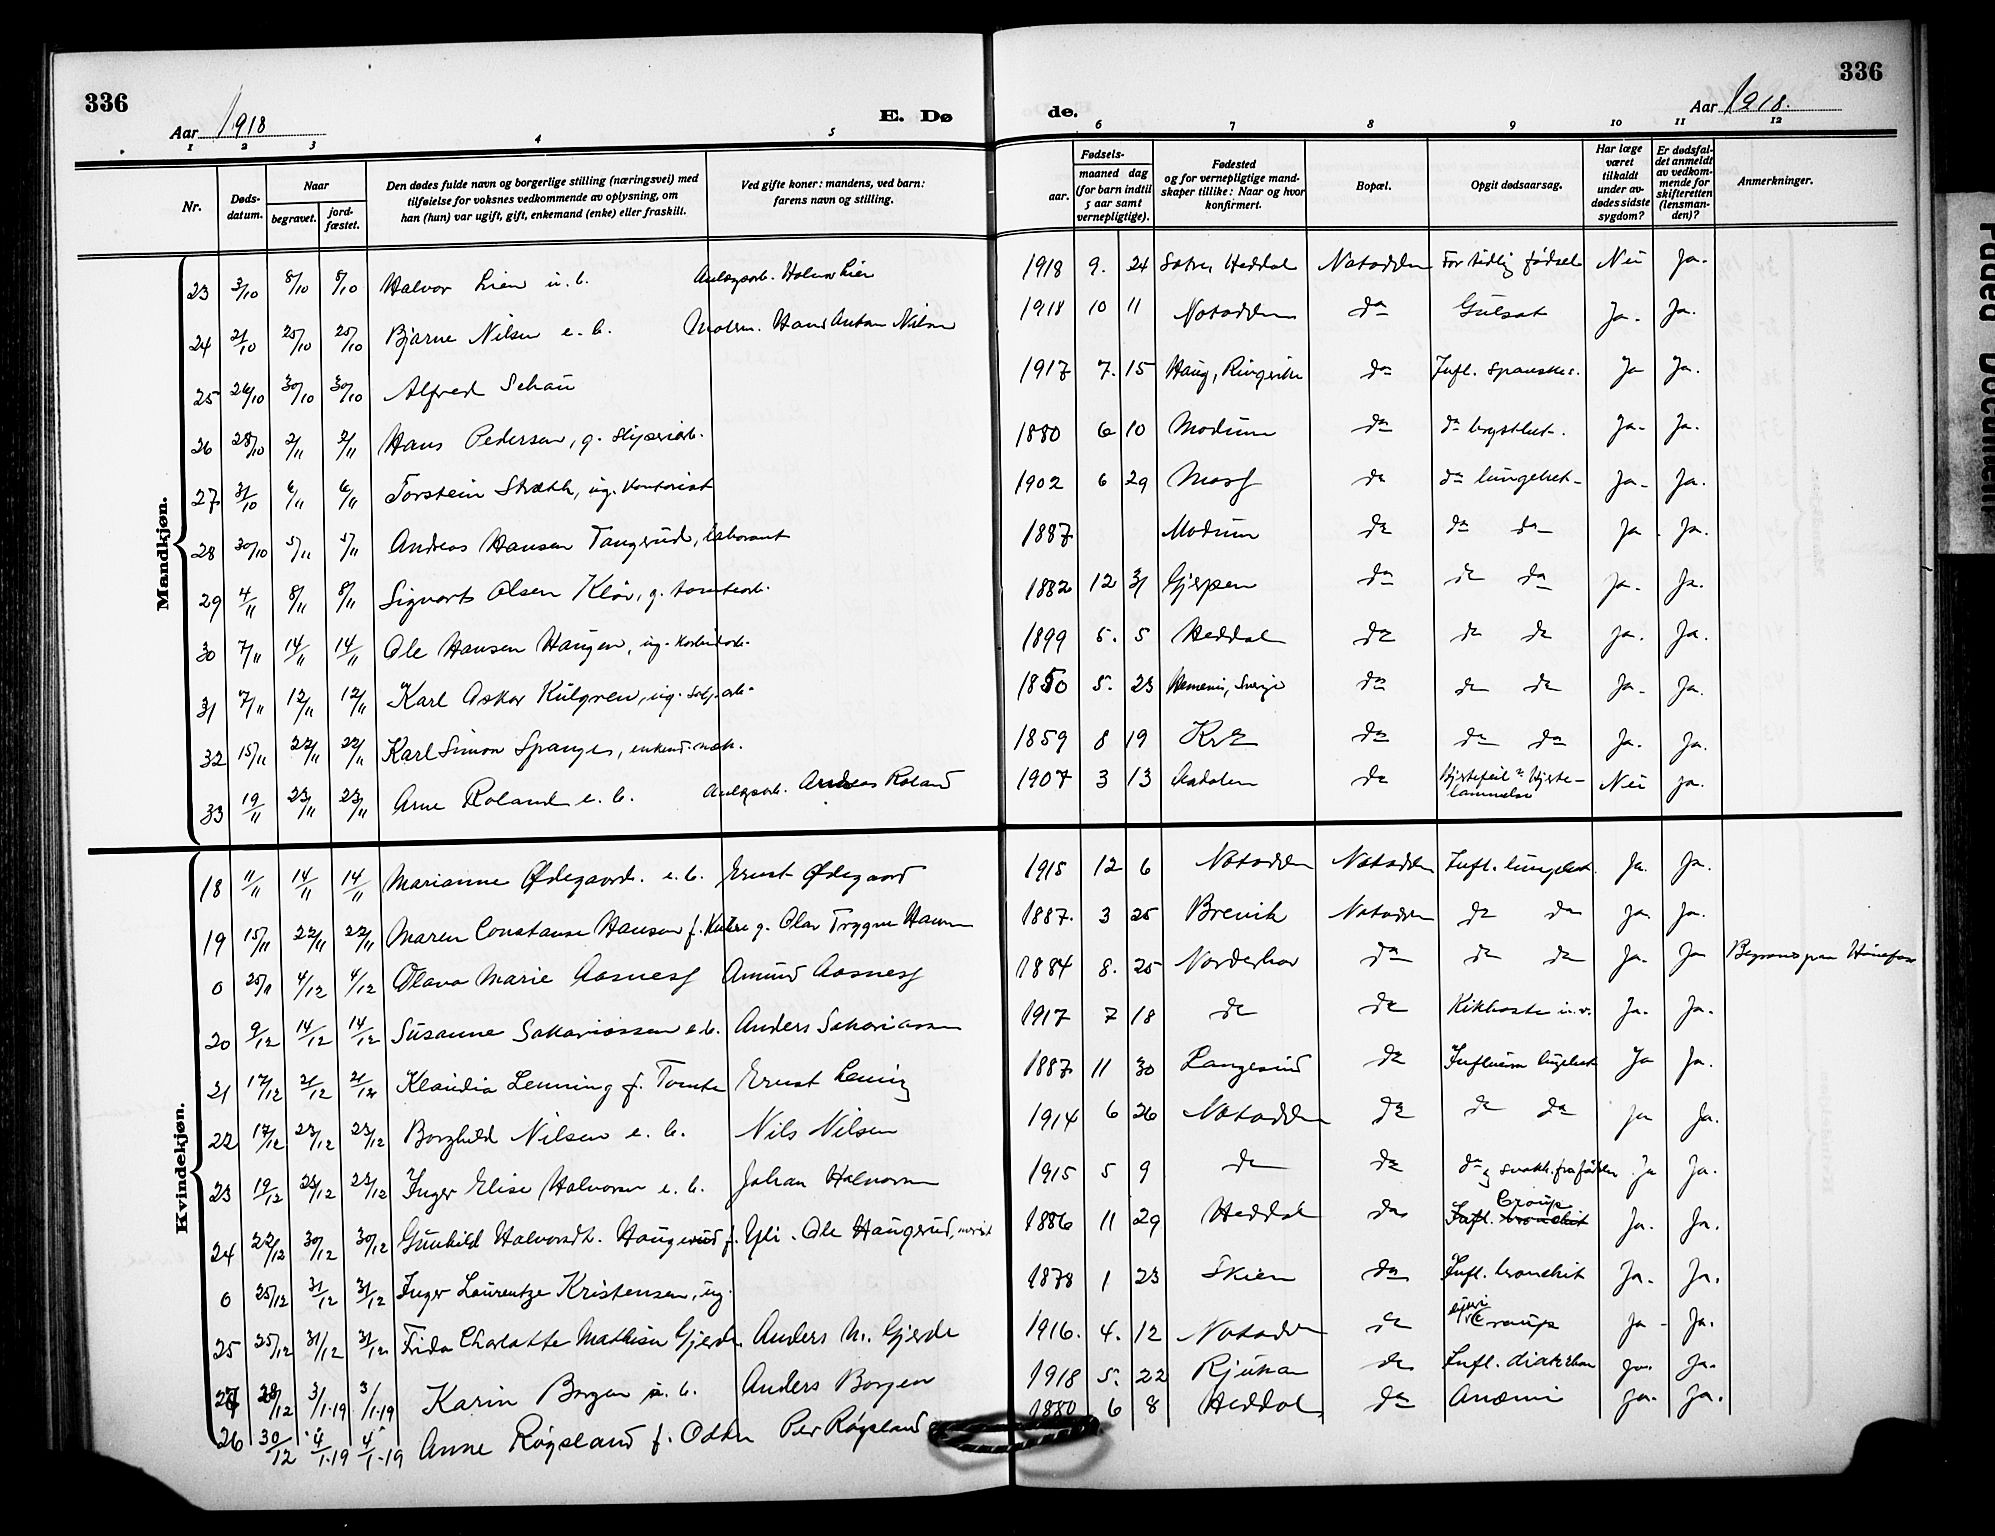 336
336
Aar 1918
E. Dø
de.
Aar 1918.
1 2 3 4 5
6 7 8 9 10 11 12
Nr.
Døds-datum.
Naar
begravet.
jord-fæstet.
Den dødes fulde navn og borgerlige stilling (næringsvei) med tilføielse for voksnes vedkommende av oplysning, om han (hun) var ugift, gift, enkemand (enke) eller fraskilt.
Ved gifte koner: mandens, ved barn: farens navn og stilling.
Fødsels-
aar.
maaned dag (for barn indtil 5 aar samt vernepligtige).
Fødested og for vernepligtige mandskaper tillike: Naar og hvor konfirmert.
Bopæl.
Opgit dødsaarsag.
Har læge været tilkaldt under avdødes sidste sygdom?
Er dødsfaldet anmeldt av vedkommende for skifteretten (lensmanden)?
Anmerkninger.
Mandkjøn.
23 3/10 8/10 8/10 Halvor Lien u. b. Anlægsarb. Halvor Lien 1918 9. 24 Heddal Notodden For tidlig fødsel Nei Ja.
24 21/10 25/10 25/10 Bjarne Nilsen e. b. Hans Anton Nilsen 1918 10 11 Notodden do Gulsot Ja. Ja.
25 26/10 30/10 30/10 Alfred Schau 1917 7. 15 Haug, Ringerike do Infl. spanske s. Ja Ja.
26 28/10 2/11 2/11 Hans Pedersen, g. sliperiarb. 1880 6 10 Modum do do brystbet. Ja. Ja.
27 31/10 6/11 6/11 Torstein Stræthe, ug. kontorist 1902 6 29 Moss do do lungebet. Ja. Ja.
28 30/10 5/11 5/11 Andreas Hansen Tangerud, laborant 1887 Modum do do do Ja. Ja.
29 4/11 8/11 8/11 Sigvart Olsen Klov, g. tomtearb. 1882 12 31 Gjerpen do do do Ja. Ja.
30 7/11 14/11 14/11 Ole Hansen Haugen, ug. karbidarb. 1899 5. 5 Heddal do do do Ja. Ja.
31 7/11 12/11 12/11 Karl Oskar Kulgren, ug. 1850 5. 23 Sverige do do do Ja. Ja.
32 15/11 22/11 22/11 Karl Simon Spanges, enkem. 1859 8 19 Kra do do do Ja. Ja.
33 19/11 23/11 23/11 Arne Roland e. b. Anlægsarb. Andreas Roland 1907 3 13 Aadalen do Hjertefeil Hjerte-lammelse Nei Ja.
Kvindekjøn.
18 11/11 14/11 14/11 Marianne Ødegaard. e. b. Ernst Ødegaard 1915 12 6 Notodden Notodden Infl. lungebet. Ja. Ja.
19 15/11 22/11 22/11 Maren Constanse Hansen f. g. Olav Trygve Hansen 1887. 3 25 Brevik Notodden do do Ja. Ja.
0 25/11 4/12 4/12 Olava Marie Aasness Amund Aasness 1884 8. 25 Norderhov do do do Ja. Ja Begraves paa Hønefoss
20 9/12 14/12 14/12 Susanne Sakariassen e. b. Anders Sakariassen 1917 7 18 do do Kikhoste Ja. Ja.
21 17/12 21/12 21/12 Klaudia Lenning f. Tomte Ernst Lenning 1887 11 30 Langesund do Influensa lungebet Ja Ja.
22 17/12 23/12 23/12 Borghild Nilsen e. b. Nils Nilsen 1914 6 26 Notodden do do do Ja Ja.
23 19/12 23/12 23/12 Inger Elise Halvorsen e. b. Johan Halvorsen 1915 5 9 do do do og svakh. fra fødselen Ja Ja.
24 22/12 30/12 30/12 Gunhild Halvorsdt. Haugerud f. Yli. Ole Haugerud, 1886 11 29 Heddal do Infl. bronchit Croup Ja. Ja.
0 25/12 31/12 31/12 Inger Laurentze Kristensen, ug. 1878 1 23 Skien do Infl. bronchit Ja. Ja.
25 25/12 31/12 31/12 Frida Charlotte Mathisen Gjerde Anders M. Gjerde 1916. 4. 12 Notodden do Croup Ja. Ja.
27 28/12 3/1.19 3/1.19 Karin Borgen e. b. Anders Borgen 1918 5. 22 Rjukan do Infl. Ja. Ja.
26 30/12 4/1.19 4/1.19 Anne Røgsland f. Odden Per Røgsland 1880 6 8 Heddal do Anæmi Ja. Ja.
Faded Document